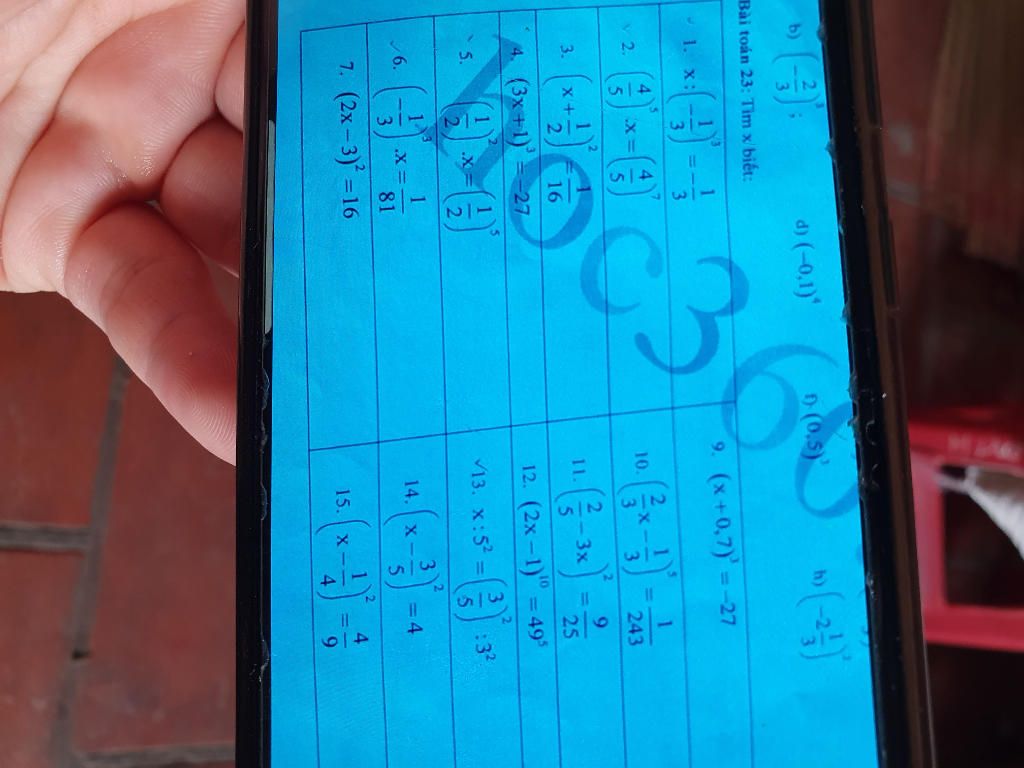 b) (-2/3)³;
d) (-0,1)⁴
f) (0.5)³
h) (-2 1/3)²
Bài toán 23: Tìm x biết:
1. x:(-1/3)³ = -1/3
9. (x+0,7)³ = -27
2. (4/5)⁵.x = (4/5)⁷
10. (2/3x - 1/3)⁵ = 1/243
3. (x+1/2)² = 1/16
11. (2/5 - 3x)² = 9/25
4. (3x+1)³ = -27
12. (2x-1)¹⁰ = 49⁵
5. (1/2)².x = (1/2)⁵
13. x:5² = (3/5)²:3²
6. (-1/3)³.x = 1/81
14. (x - 3/5)² = 4
7. (2x-3)² = 16
15. (x - 1/4)² = 4/9
hoc360